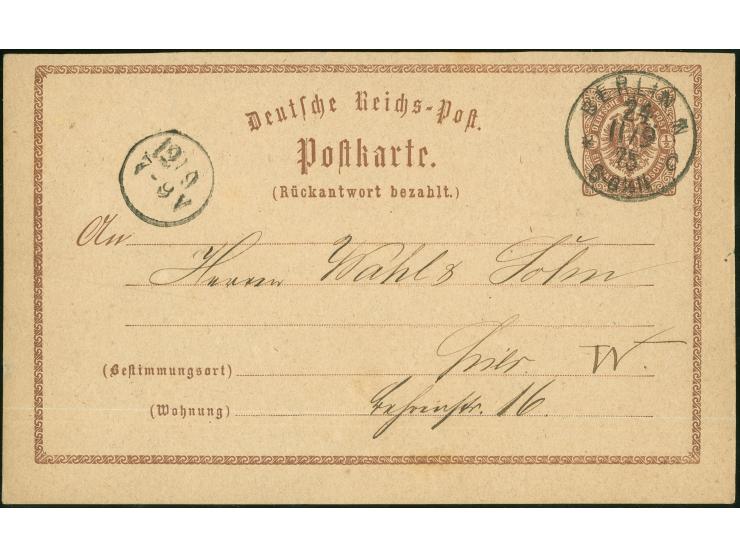 BERLIN N
24
11/9
75
Deutsche Reichs-Post.
Postkarte.
(Rückantwort bezahlt.)
An
Herrn Wahl & Sohn
(Bestimmungsort) hier W.
(Wohnung) Behrenstr. 16.